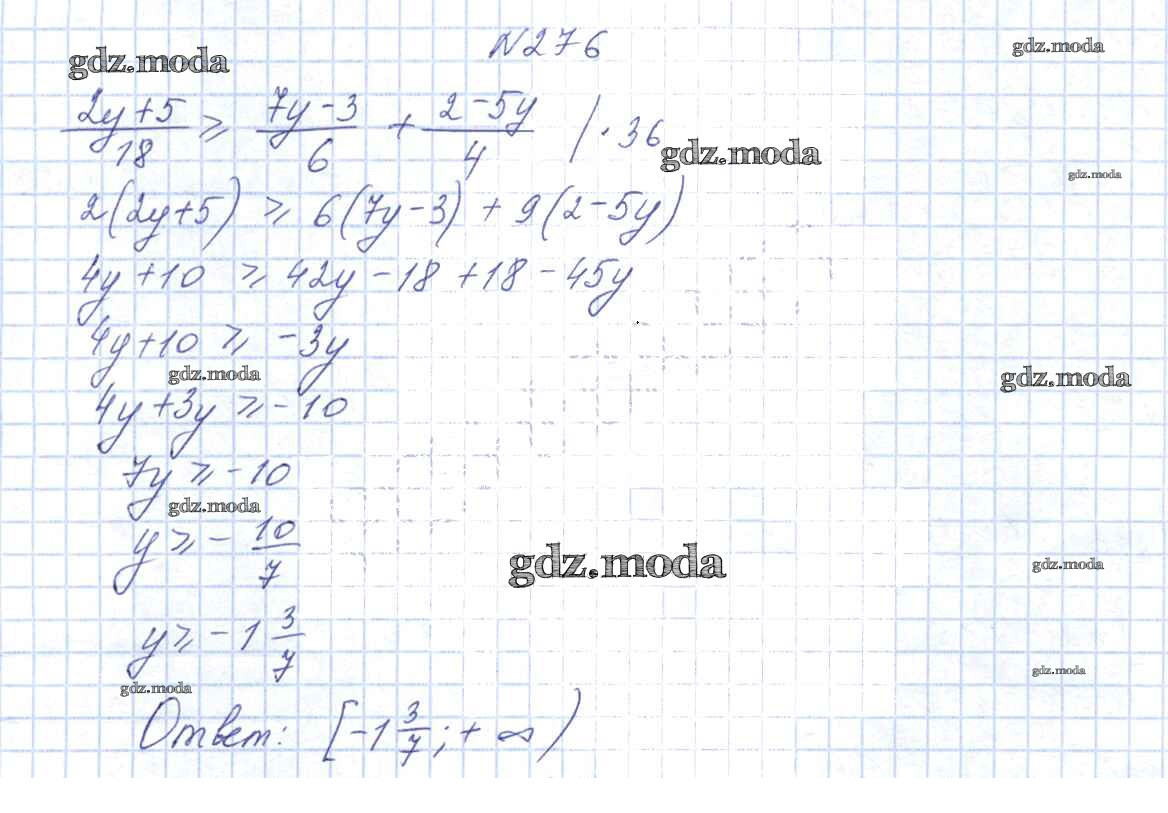 N276
gdz.moda
gdz.moda
(2y+5)/18 ≥ (7y-3)/6 + (2-5y)/4 | · 36
gdz.moda
gdz.moda
2(2y+5) ≥ 6(7y-3) + 9(2-5y)
4y+10 ≥ 42y-18+18-45y
4y+10 ≥ -3y
gdz.moda
gdz.moda
4y+3y ≥ -10
7y ≥ -10
gdz.moda
y ≥ - 10/7
gdz.moda
gdz.moda
y ≥ -1 3/7
gdz.moda
gdz.moda
Ответ: [-1 3/7; +∞)